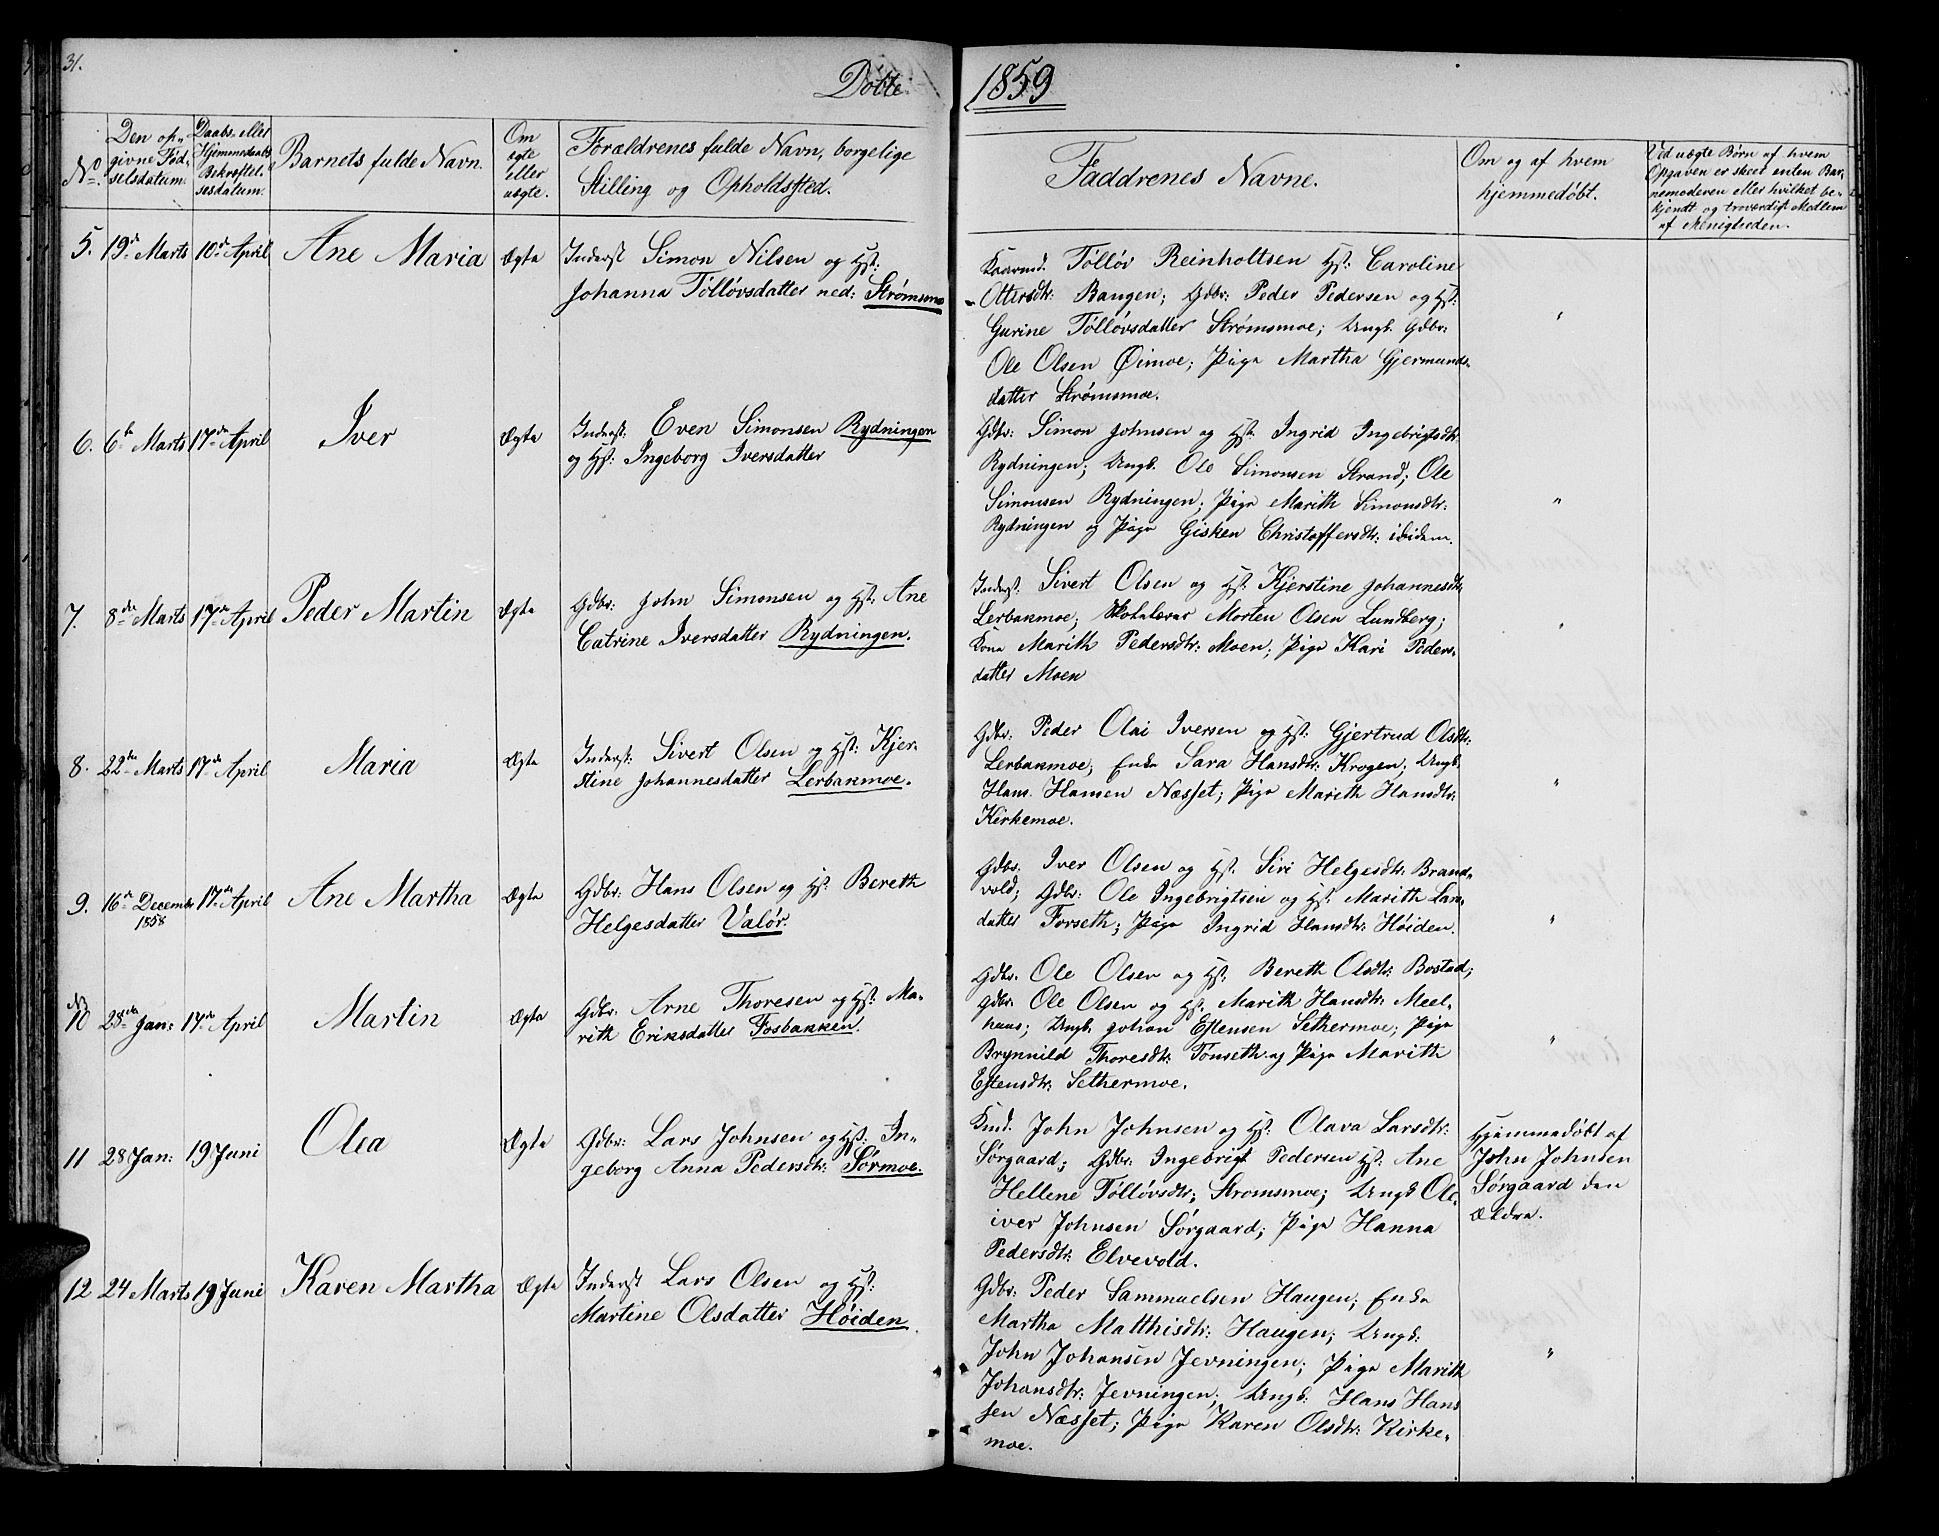 31.
Döbte
1859
No.
Den op-
givne Föd-
selsdatum.
Daabs- eller
Hjemmedaabs
Bekræftel-
sesdatum.
Barnets fulde Navn.
Om
ægte
eller
uægte.
Forældrenes fulde Navn, borgelige
Stilling og Opholdsted.
Faddrenes Navne.
Om og af hvem
hjemmedöbt.
Ved uægte Börn af hvem
Opgaven er skeet enten Bar-
nemoderen eller hvilket be-
kjendt og troværdigt Medlem
af Menigheden.
5. 19de Marts 10de April Ane Maria Ægte
Inderst Simon Nilsen og Hst:
Johanna Töllövsdatter ned: Strømsmo
Kaarmd. Töllöv Reinholtsen Hst: Caroline
Ottersdtr: Bangen; Gdbr: Peder Pedersen og Hst:
Gurine Töllövsdatter Strømsmoe; Ungk. Gdbr:
Ole Olsen Øimoe; Pige Martha Gjermunds-
datter Strömsmoe.
"
6. 6te Marts 17de April Iver Ægte
Inderst: Even Simonsen Rydningen
og Hst: Ingeborg Iversdatter
Gdbr: Simon Johnsen og Hst. Ingrid Ingebrigtsdtr:
Rydningen; Ungk. Ole Simonsen Strand; Ole
Simonsen Rydningen; Pige Marith Simonsdtr:
Rydningen og Pige Gisken Christoffersdtr: ibidem.
"
7. 8de Marts 17de April Peder Martin Ægte
Gdbr: John Simonsen og Hst: Ane
Catrine Iversdatter Rydningen.
Inderst. Sivert Olsen og Hst. Kjerstine Johannesdtr:
Lerbakmoe; Skolelærer Morten Olsen Lundberg;
Kone Marith Pedersdtr: Moen; Pige Kari Peders-
datter Moen
"
8. 22de Marts 17de April Maria Ægte
Inderst: Sivert Olsen og Hst: Kjer-
stine Johannesdatter Lerbakmoe.
Gdbr. Peder Olai Iversen og Hst: Gjertrud Olsdtr:
Lerbakmoe; Enke Sara Hansdtr: Krogen; Ungk.
Hans Hansen Næsset; Pige Marith Hansdtr:
Kirkemoe.
"
9. 16de December 17de April Ane Martha Ægte
1858
Gdbr: Hans Olsen og Hst. Bereth
Helgesdatter Valør.
Gdbr. Iver Olsen og Hst. Siri Helgesdtr: Brand-
vold; Gdbr: Ole Ingebrigtsen og Hst. Marith Lars-
datter Forseth; Pige Ingrid Hansdtr: Höiden.
"
No
10 28de Jan: 17de April Martin Ægte
Gdbr. Arne Thoresen og Hst. Ma-
rith Eriksdatter Fosbakken.
Gdbr. Ole Olsen og Hst. Bereth Olsdtr: Bostad;
Gdbr: Ole Olsen og Hst. Marith Hansdtr: Meel-
huus; Ungk. Johan Estensen Sethermoe; Pige
Brynhild Thoresdtr: Tönseth og Pige Marith
Estensdtr: Sethermoe.
"
11 28 Jan: 19 Juni Olea Ægte
Gdbr: Lars Johnsen og Hst: In-
geborg Anna Pedersdtr: Sørmoe.
Kmd. John Johnsen og Hst: Olava Larsdtr:
Sörgaard; Gdbr: Ingebrigt Pedersen Hst: Ane
Hellene Töllövsdtr: Strømsmoe; Ungk Ole
iver Johnsen Sörgaard; Pige Hanna
Pedersdtr: Elvevold.
Hjemmedöbt af
John Johnsen
Sörgaard den
Ældre.
12 24 Marts 19 Juni Karen Martha Ægte
Inderst Lars Olsen og Hst:
Martine Olsdatter Höiden
Gdbr: Peder Sammuelsen Haugen; Enke
Martha Matthisdtr: Haugen; Ungk:
John Johansen Jevningen; Pige Marith
Johansdtr: Jevningen; Ungk: Hans Han-
sen Næsset; Pige Karen Olsdtr: Kirke-
moe.
"